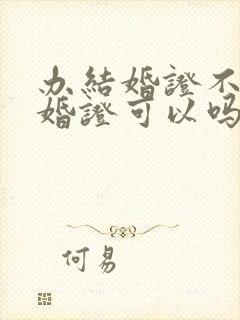 办結婚證不
婚證可以吗
何易